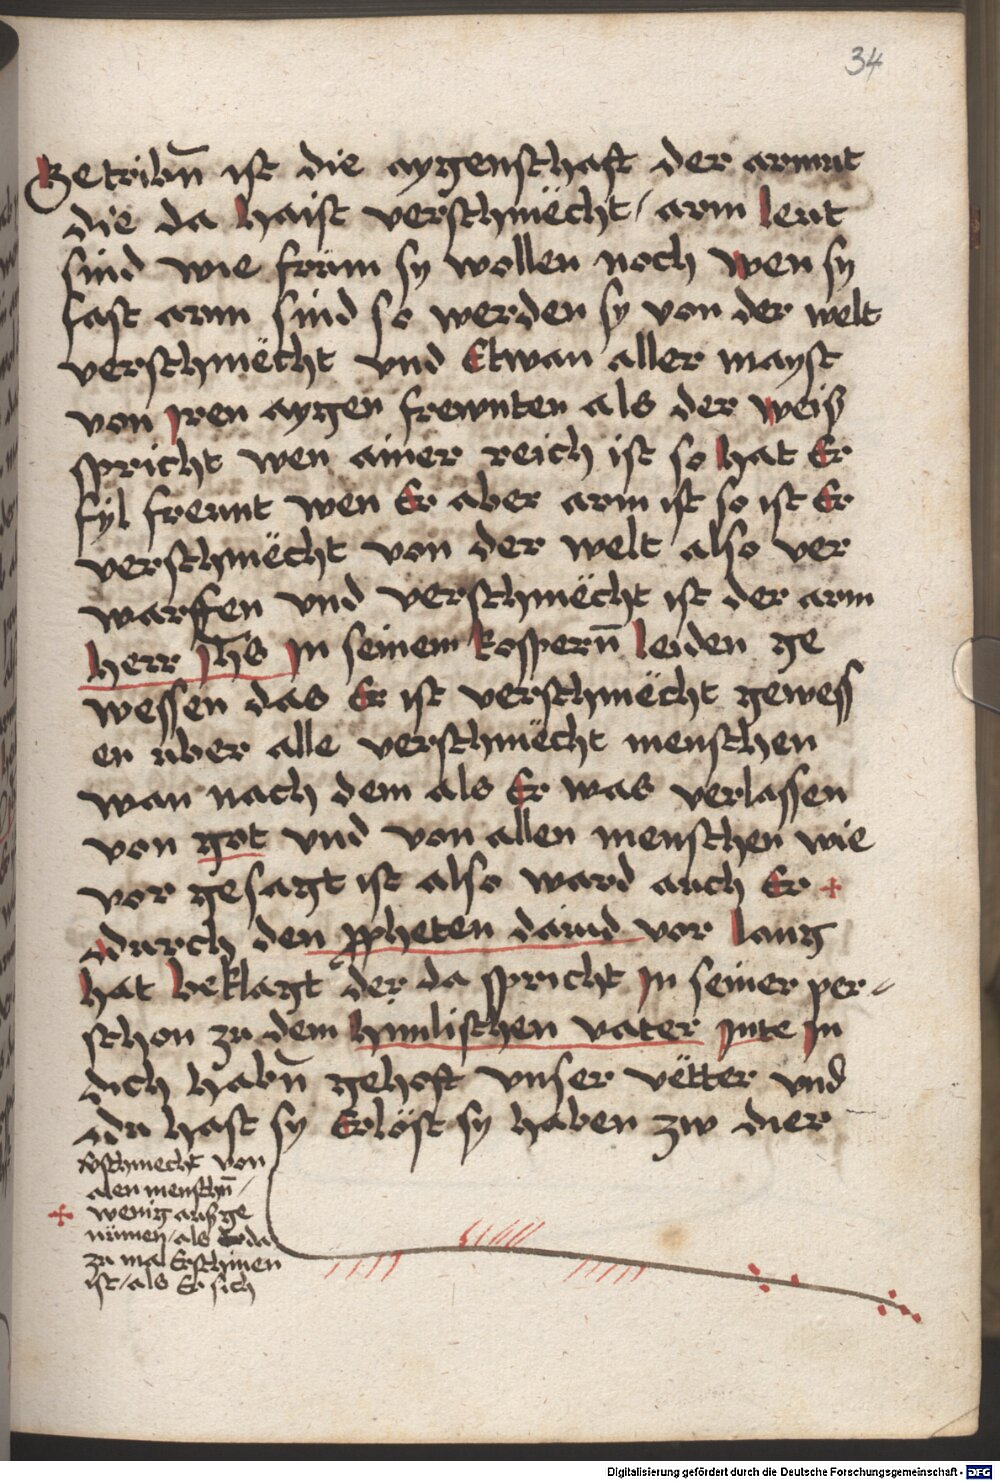 34
Getribn̄ ist die aygenschaft der armut
die da haist verschmëcht / arm leut
sind wie frum sy wollen noch wen sy
fast arm sind so werden sy von der welt
verschmëcht vnd Etwan aller mayst
von jren aygen frewnten als der weiß
spricht wen ainer reich ist so hat Er
fyl freunt wen Er aber arm ist so ist Er
verschmëcht von der welt also ver
warffen vnd verschmëcht ist der arm
herr jhs jn seinem kospern̄ leiden ge
wessen das Er ist verschmëcht gewess
en uber alle verschmëcht menschen
wan nach dem als Er was verlassen
von got vnd von allen menschen wie
vor gesagt ist also ward auch Er +
durch den ppheten dauid vor lang
hat beklagt der da spricht jn seiner per-
schon zu dem himlischen vater jnte jn
dich habn̄ gehoft vnser vëtter vnd
du hast sy Erlöst sy haben zw dier
v̄schmecht von
alen menschn̄ /
+ wenig außge
numen / als Er da
zu mal Erschinen
ist / als Er sich
Digitalisierung gefördert durch die Deutsche Forschungsgemeinschaft - DFG